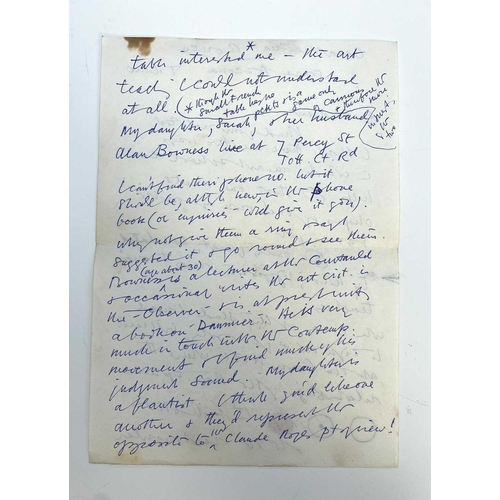 table interested * me — the art
teach I could not understand
at all (* though the
small French
table has no
My daughter, Sarah, & her husband
Alan Bowness live at 7 Percy St
Tott. Ct. Rd
I can't find their phone no. but it
should be, altho new, in the phone
book (or enquiries wld give it you).
Why not give them a ring & say I
suggested it & go round & see them.
(age about 30)
Bowness is a lecturer at the Courtauld
& occasional writes the art crit. in
the Observer & is at pres. writing
a book on Daumier — He is very
much in touch with the Contemp.
movement & I find much of his
judgment sound. My daughter is
a flautist I think you'd like one
another & they'd represent the
opposite to the Claude Rogers pt of view!